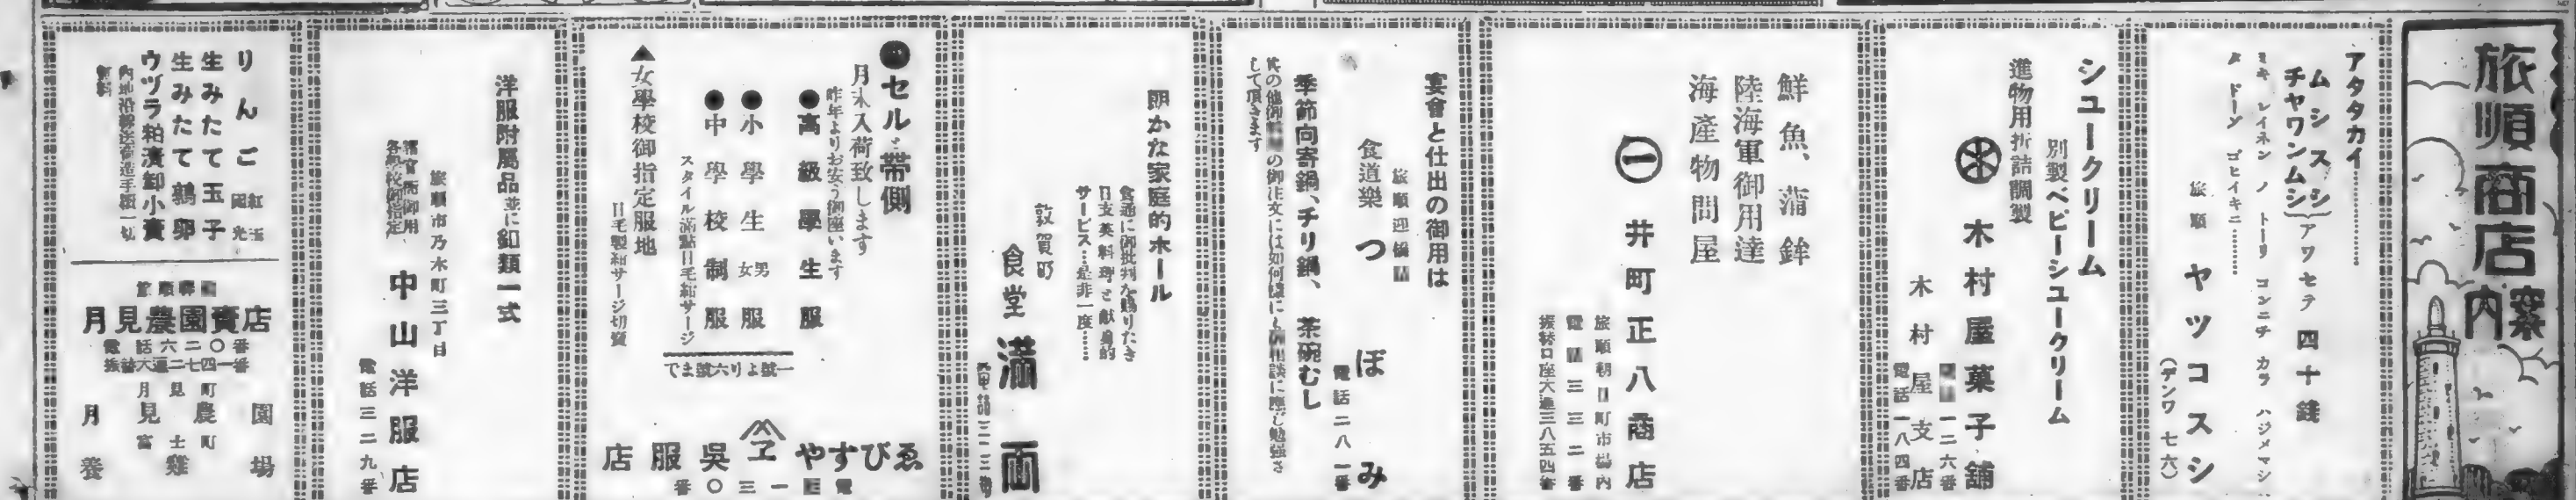 旅順商店案内
アタタカイ…………
ムシスシ
チヤワンムシ
アワセテ 四十錢
ミキレイネン ノ トーリ コンニチ カラ ハジメマシ
タ ドーゾ ゴヒイキニ………
旅順 ヤツコスシ
(デンワ 七六)
シユークリーム
別製ベビーシユークリーム
進物用折詰調製
木村屋菓子舗
一二六番
木村屋支店
電話一八四番
鮮魚、蒲鉾
陸海軍御用達
海產物問屋
一 井町正八商店
旅順朝日町市場內
電話三三二番
振替口座大連三八五四番
宴會と仕出の御用は
旅順迎橋
食道樂 つぼみ
電話二八一番
季節向寄鍋、チリ鍋、茶碗むし
其の他御の御注文には如何樣にも御相談に應じ勉强さ
して頂きます
朗かな家庭的ホール
食通に御批判を賜りたき
日支英料理と献身的
サービス…是非一度……
敦賀町
食堂 滿両
●セルと帶側
月末入荷致します
昨年よりお安う御座います
●高級學生服
●小學生男女服
●中學校制服
スタイル滿點日毛紺サージ
一號より六號まで
▲女學校御指定服地
日毛製紺サージ切賣
ゑびすや ヱ 吳服店
電 一三〇番
洋服附屬品並に釦類一式
旅順市乃木町三丁目
諸官衙御用
各學校御指定
中山洋服店
電話三二九番
りんご 紅玉 國光
生みたて玉子
生みたて鶉卵
ウヅラ粕漬卸小賣
內地沿線送荷造手數一切
無料
月見農園賣店
電話六二〇番
振替大連二七四一番
月見町
月見農園
富士町
養雞場